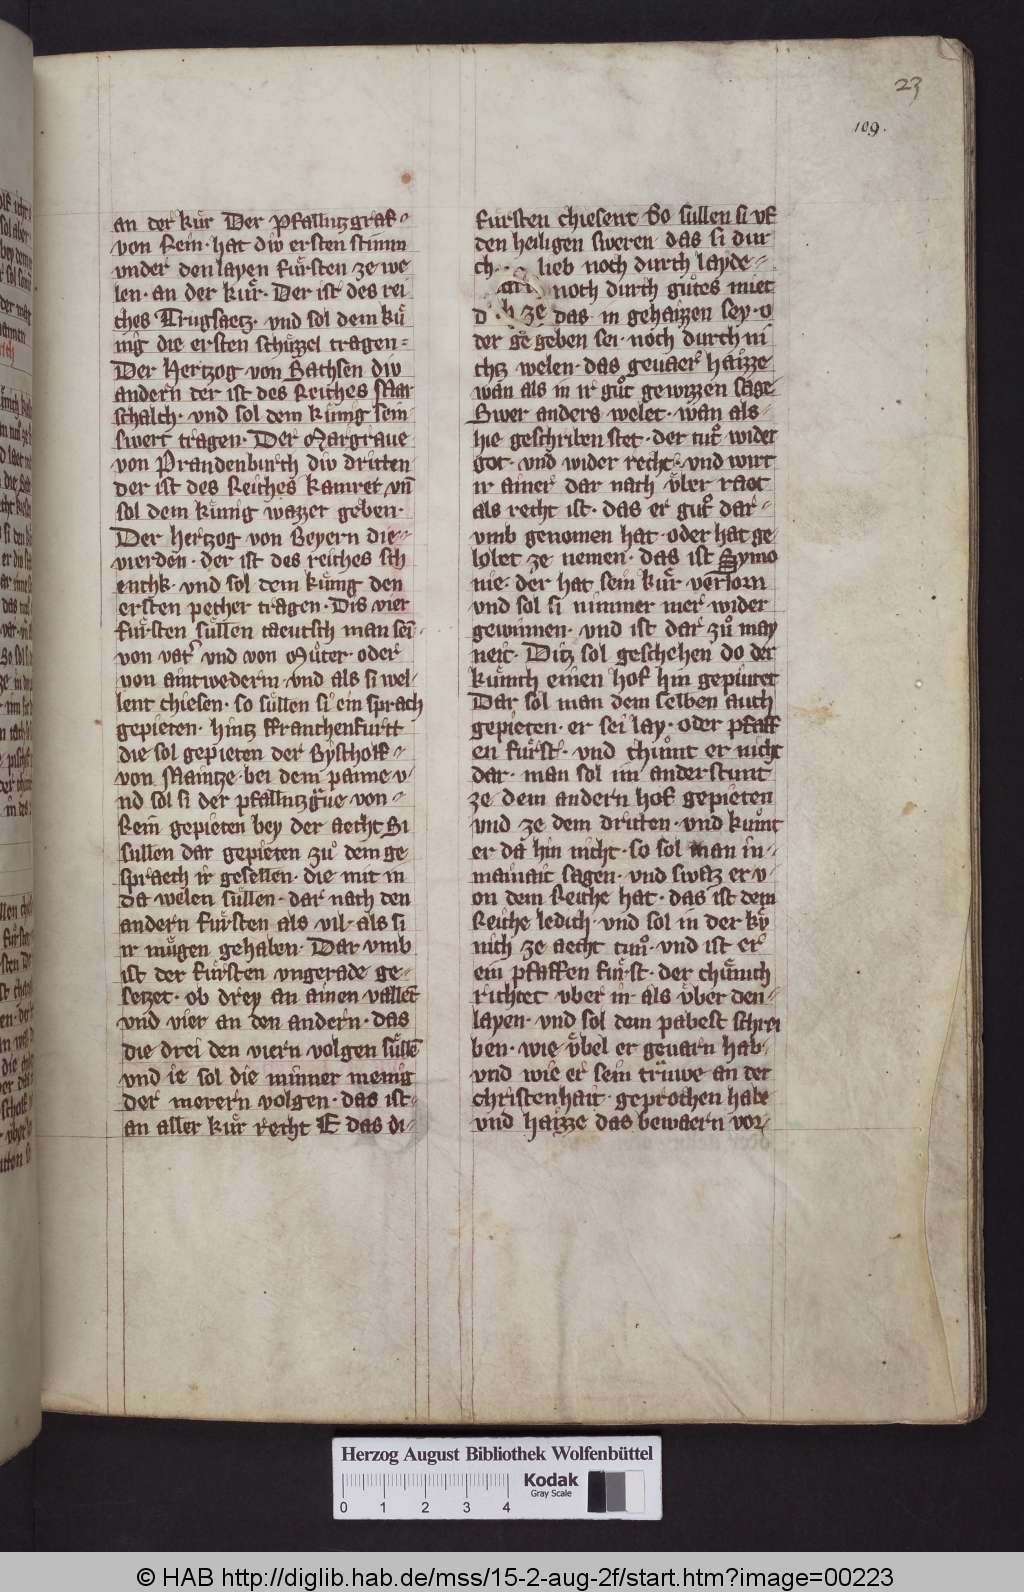 23
109.
an der kuͤr Der pfallntzgraf⸗
von Rein· hat div ersten stimm
vnder den layen fuͤrsten ze we
len· an der kuͤr· Der ist des rei
ches Trugsaetz· vnd sol dem kuͤ
nig die ersten schuͤzzel tragen⸗
Der Hertzog von Sachsen div
andern der ist des Reiches Mar
schalch· vnd sol dem kuͤnig sein
swert tragen· Der Margraue
von Prandenburch div dritten
der ist des Reiches kamrer vn̄
sol dem kuͤnig wazzer geben·
Der Hertzog von Beyern die⸗
vierden· der ist des reiches sch
enchk· vnd sol dem kuͤnig den
ersten pecher tragen· Dis vier
fuͤrsten suͤllen taeutsch man sei
von vater vnd von Muͦter· oder
von aintwederm· vnd als si wel
lent chiesen· so suͤllen si ein sprach
gepieten· hintz ffranchenfurtt
die sol gepieten der Byscholf⸗
von Maintze· bei dem panne v
nd sol si der pfallntzgraue von⸗
Rein gepieten bey der aecht Si
sullen dar gepieten zuͦ dem ge
spraech ir gesellen· die mit in
da welen suͤllen· dar nach den
andern fuͤrsten als vil· als si
ir muͤgen gehaben· Dar vmb
ist der fuͤrsten vngerade ge⸗
setzet· ob drey an ainen vallēt
vnd vier an den andern· das
die drei den viern volgen suͤllē
vnd ie sol die minner menig
der merern volgen· das ist
an aller kuͤr recht E das di⸗
fursten chiesent So sullen si vf
den heiligen sweren das si dur
ch lieb noch durch layde⸗
noch durch guͦtes miet
d ze das in gehaizzen sey· o
der ge geben sei· noch durch ni
chtz welen· das geuaer haizze
wan als in ir guͦt gewizzen sage
Swer anders welet· wan als⸗
hie geschriben stet· der tuͦt wider
got· vnd wider recht· vnd wirt
ir ainer dar nach vͤber raet
als recht ist· das er guͦt dar⸗
vmb genomen hat· oder hat ge
lobet ze nemen· das ist Symo
nie· der hat sein kuͤr verlorn
vnd sol si nimmer mer wider
gewinnen· vnd ist dar zuͦ may
neit· Ditz sol geschehen do der
kuͤnich einen hof hin gepiutet
Dar sol man dem selben auch
gepieten· er sei lay· oder pfaff
en fuͤrst· vnd chuͤmt er nicht
dar· man sol im anderstunt
ze dem andern hof gepieten
vnd ze dem dritten· vnd kuͤmt
er da hin nicht· so sol man in⸗
mainait sagen· vnd swaz er v
on dem Reiche hat· das ist dem
Reiche ledich· vnd sol in der kuͤ
nich ze aecht tuͦn· vnd ist er
ein pfaffen fuͤrst· der chuͤnich
richtet vber in als vͤber den⸗
layen· vnd sol dem pabest schrei
ben· wie vͤbel er geuarn hab
vnd wie er sein truͤwe an der
christenhait geprochen habe
vnd haizze das bewaern vor⸗
Herzog August Bibliothek Wolfenbüttel
0 1 2 3 4
Kodak
Gray Scale
© HAB http://diglib.hab.de/mss/15-2-aug-2f/start.htm?image=00223